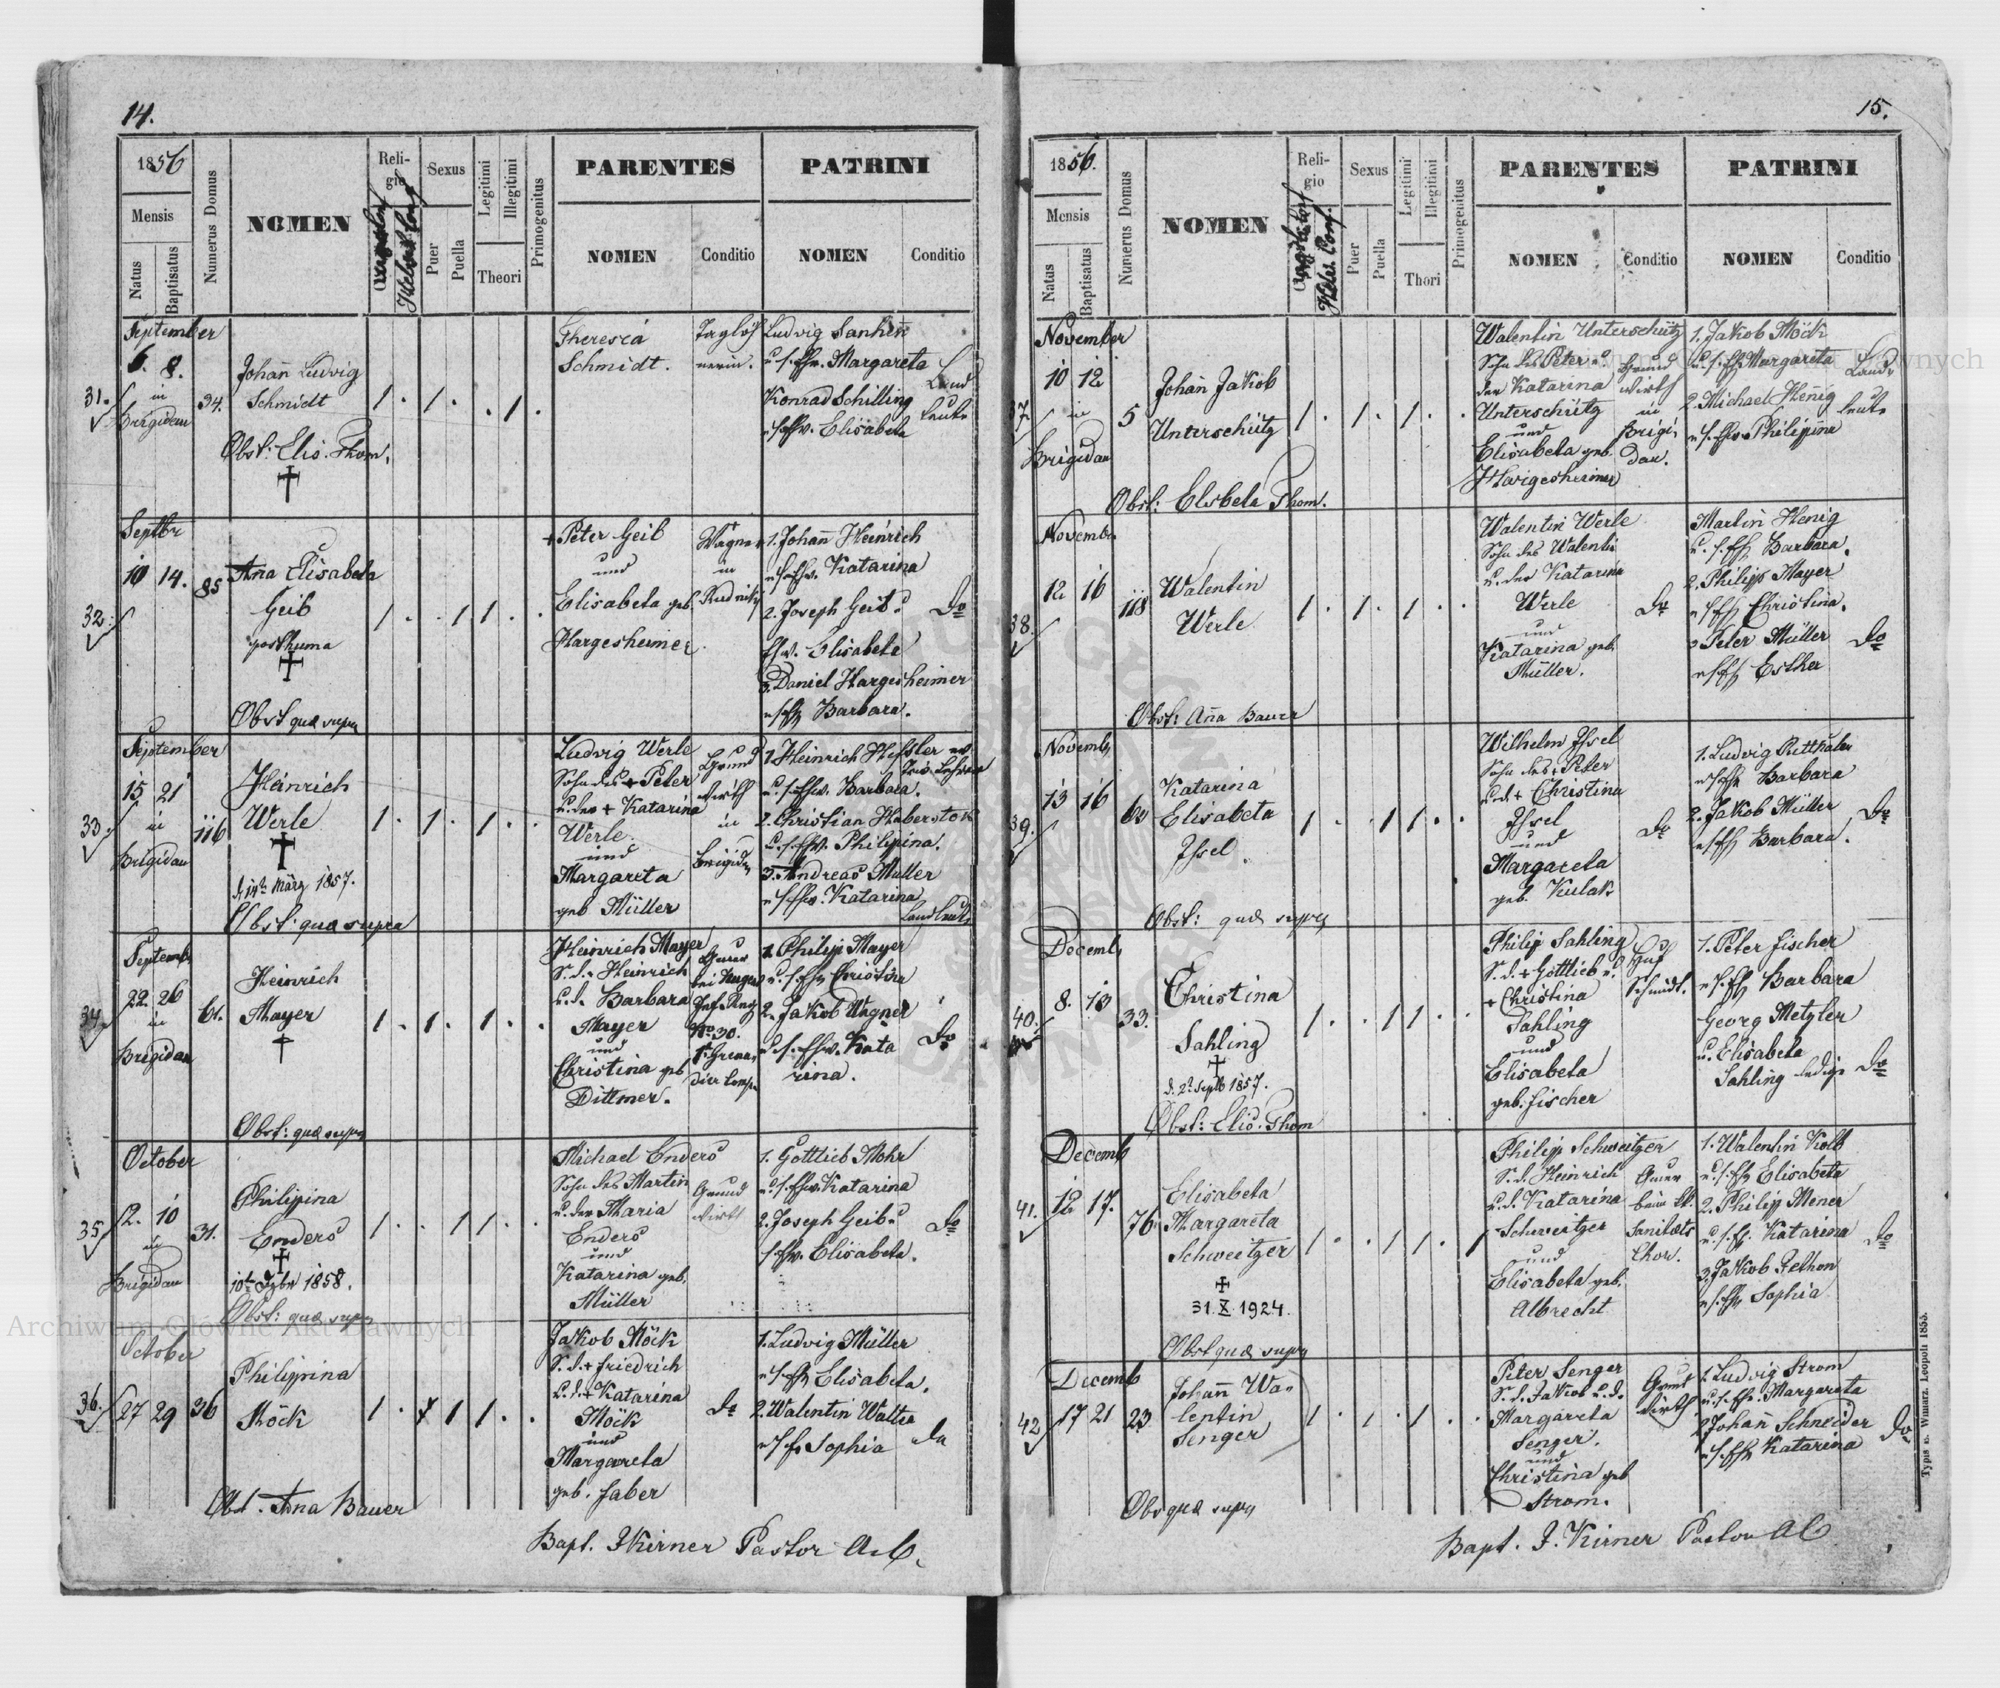 14.
1856
Mensis
Natus
Baptisatus
Numerus Domus
NOMEN
Reli-
gio
Sexus
Puer
Puella
Legitimi
Illegitimi
Theori
Primogenitus
PARENTES
NOMEN
Conditio
PATRINI
NOMEN
Conditio
September
31.
6. 8.
in
Brigidau
94.
Johañ Ludvig
Schmidt
Obst: Elis. Thom.
Theresia
Schmidt.
Ludvig
u. s. Ehw. Margareta
Konrad Schilling
u. s. Ehw. Elisabeta
Land
leute
Septbr
32.
10 14. 85
Aña Elisabeta
Geib
posthuma
Obst quæ supra
+ Peter Geib
und
Elisabeta geb.
Hargesheimer
Wagner
in
1. Johañ Heinrich
u. s. Ehw. Katarina
2. Joseph Geib u
Ehw. Elisabeta
3. Daniel Hargesheimer
u s Ehw Barbara.
Do
September
33.
15 21
in
Brigidau
116
Heinrich
Werle
d. 14t März 1857.
Obst: quæ supra
Ludvig Werle
Sohn des + Peter
u. der + Katarina
Werle
und
Margareta
geb Müller
Grund
wirth
in
Brigidau
1. Heinrich
u. s. Ehw. Barbara.
2. Christian Haberstok
u. s. Ehw. Philipina.
3. Andreas Müller
u s Ehw. Katarina
Landleute
Septemb
34.
22. 26
in
Brigidau
61.
Heinrich
Mayer
Obst: quæ supra
Heinrich Mayer
S. d. Heinrich
u. d. Barbara
Mayer
und
Christina geb
Dittmer.
No. 30.
1. Philipp Mayer
u. s. Ehw Christina
2. Jakob Wagner
u. s. Ehw. Kata
rina.
Do
October
35
2. 10
in
Brigidau
31.
Philippina
Enders
10t 1858.
Obst: quæ supra
Michael Enders
Sohn des Martin
u. der Maria
Enders
und
Katarina geb.
Müller
Grund
wirth
1. Gottlieb Mohr
u. s. Ehw. Katarina
2. Joseph Geib u
s Ehw. Elisabeta.
Do
October
36.
27 29 36
Philippina
Möck
Obst. Aña Bauer
Jakob Möck
S. d. + Friedrich
u. d. + Katarina
Möck
und
Margareta
geb. Faber
Do
1. Ludvig Müller
u s Ehw Elisabeta.
2. Walentin Walter
u s Ehw Sophia
Do
Bapt. J Kirner Pastor A. C.
15.
1856.
Mensis
Natus
Baptisatus
Numerus Domus
NOMEN
Reli-
gio
Helv. Conf.
Sexus
Puer
Puella
Legitimi
Illegitimi
Thori
Primogenitus
PARENTES
NOMEN
Conditio
PATRINI
NOMEN
Conditio
November
37.
10 12
in
Brigidau
5
Johañ Jakob
Unterschütz
Obst: Elsbeta Thom.
Walentin Unterschütz
Sohn des Peter u.
der Katarina
Unterschütz
und
Elisabeta geb.
Grund
wirth
in
Brigi
dau.
1. Jakob Möck
u. s. Ehw Margareta
2. Michael Heñig
u s. Ehw Philippina
Land
leute
Novembr
38.
12 16 118
Walentin
Werle
Obst: Aña Bauer
Walentin Werle
Sohn des Walentin
u. der Katarina
Werle
und
Katarina geb.
Müller.
Do
Martin Henig
u. s. Ehw Barbara.
2. Philipp Mayer
u s Ehw Christina.
3 Peter Müller
u s Ehw Esther
Do
Novemb
39.
13 16
Katarina
Elisabeta
Issel.
Obst: quæ supra
Wilhelm Issel
Sohn des + Peter
u. d. + Christina
Issel
und
Margareta
geb. Kulak
Do
1. Ludvig Ritthaler
u s Ehw Barbara
2. Jakob Müller
u s Ehw Barbara.
Do
Decemb
40.
8. 13 33.
Christina
Sahling
d. 2t Septb 1857.
Obst: Elis. Thom
Philip Sahling
S. d. + Gottlieb u.
+ Christina
Sahling
und
Elisabeta
geb. Fischer
Huf
Schmidt.
1. Peter Fischer
u s. Ehw Barbara
Georg Metzler
u. Elisabeta
Sahling ledige
Do
Decemb
41.
12 17. 76
Elisabeta
Margareta
Schweitzer
31. X. 1924.
Obst quæ supra
Philipp Schweitzer
S. d. Heinrich
u. d. Katarina
Schweitzer
und
Elisabeta geb.
Albrecht
Sanitæts
Chor.
1. Walentin Kolb
u. s. Ehw Elisabeta
2. Philip Mener
u. s. Ehw. Katarina
3. Jakob Rethon
u s. Ehw Sophia
Do
Decemb
42
17 21 23
Johañ Wa-
lentin
Senger
Obs quæ supra
Peter Senger
S. d. Jakob u. d.
Margareta
Senger.
und
Christina geb
Strom.
Grund
wirth
1. Ludvig Strom
u. s. Ehw. Margareta
2 Johañ Schneider
u. s. Ehw Katarina
Do
Bapt. J. Kirner Pastor AC
Typus E. Winiarz. Leopoli 1855.
Archiwum Główne Akt Dawnych